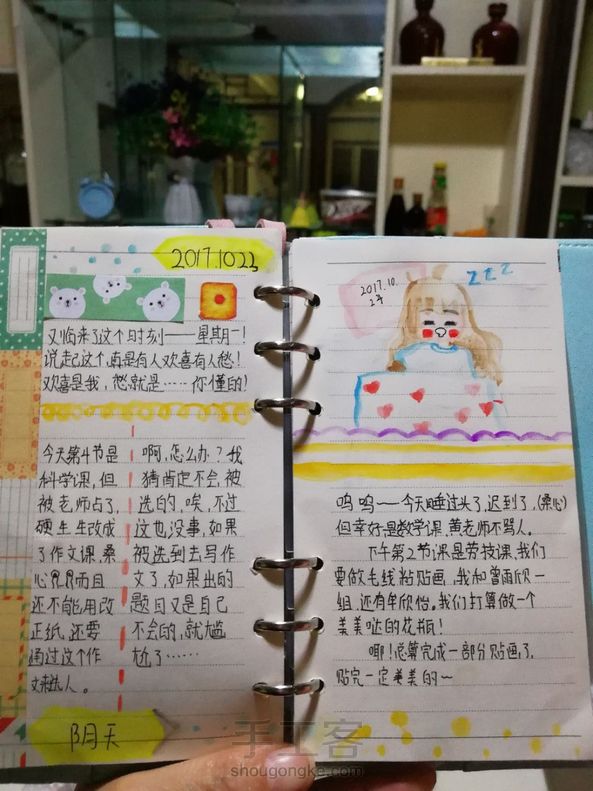 2017.10.23
又临来了这个时刻——星期一!
说起这个,真是有人欢喜有人愁!
欢喜是我,愁就是……你懂的!
今天第4节是
科学课,但
被老师占了,
硬生生改成
了作文课,桑
心,而且
还不能用改
正纸,还要
通过这个作
文来选人。
啊,怎么办?我
猜肯定不会被
选的,唉,不过
这也没事,如果
被选到去写作
文了,如果出的
题目又是自己
不会的,就尴
尬了……
阴天
2017.10.
24
zzz
呜呜——今天睡过头了,迟到了,(桑心)
但幸好是数学课,黄老师不骂人。
下午第2节课是劳技课,我们
要做毛线粘贴画,我和曾雨欣一
组,还有牟欣怡,我们打算做一个
美美哒的花瓶!
耶!总算完成一部分贴画了,
贴完一定美美的~
手工客
shougongke.com